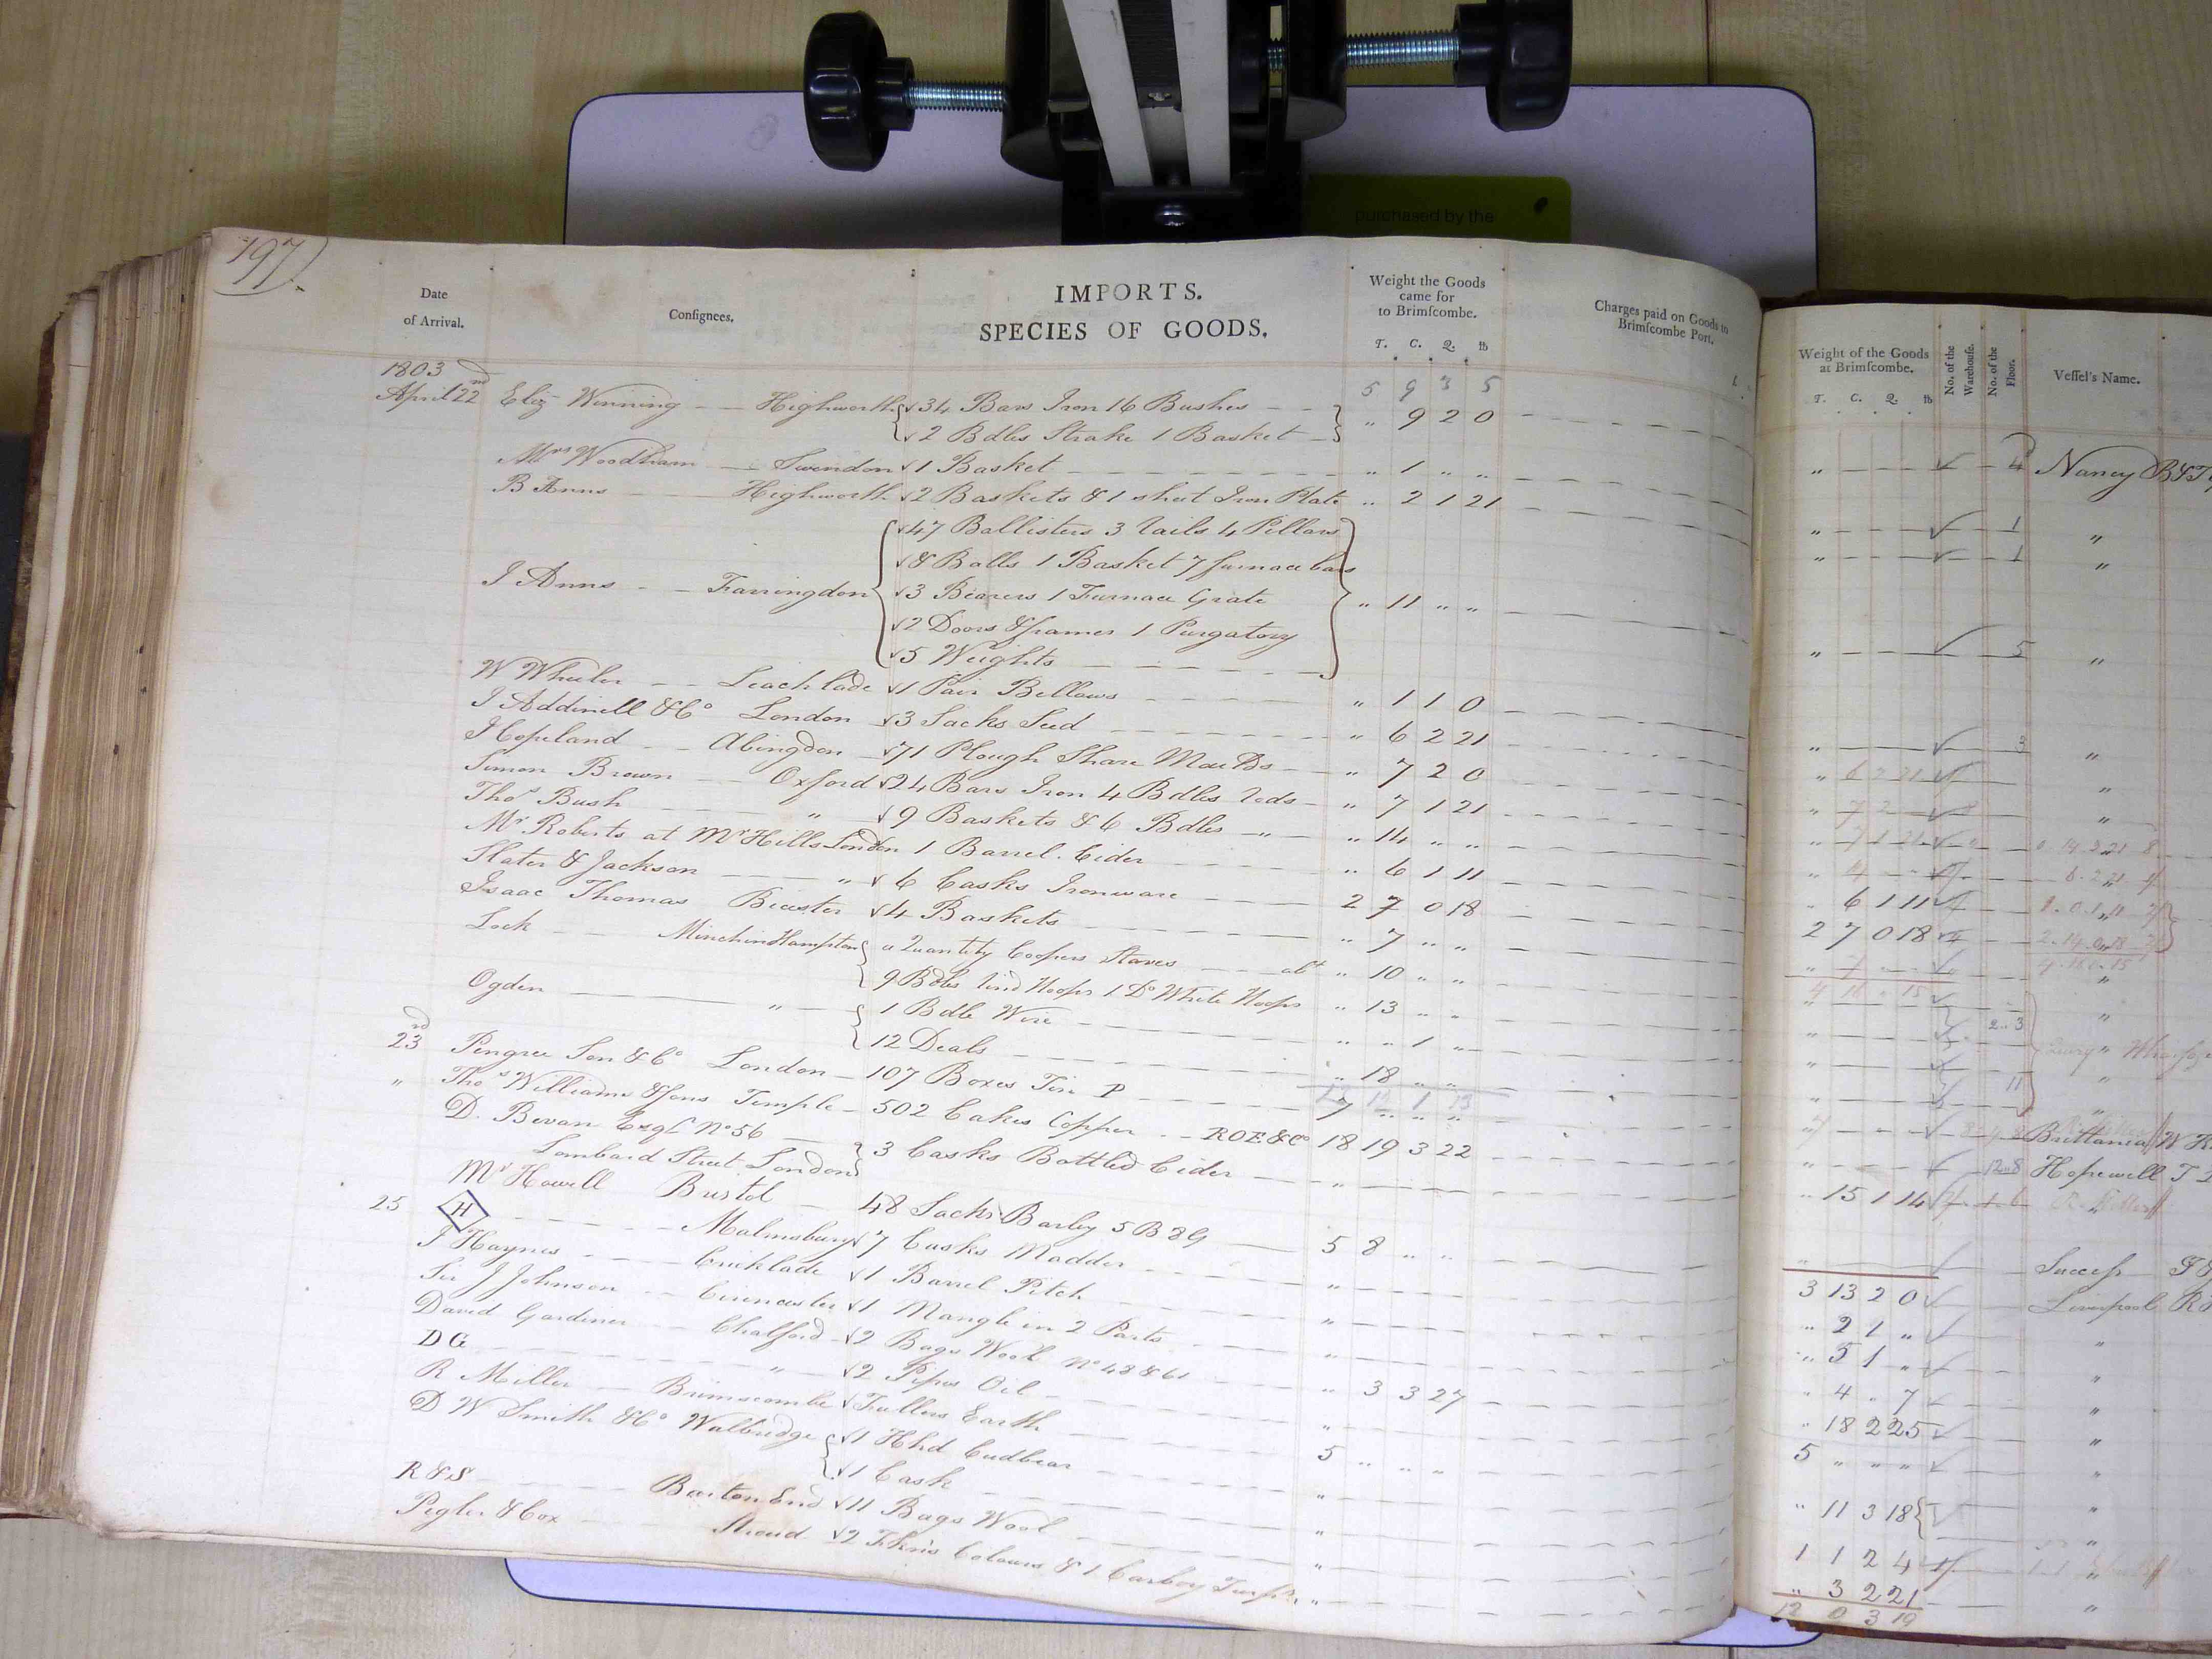 purchased by the
197
Date of Arrival.
Consignees.
IMPORTS.
SPECIES OF GOODS.
Weight the Goods came for to Brimscombe.
T. C. Q. lb
Charges paid on Goods to Brimscombe Port.
Weight of the Goods at Brimscombe.
T. C. Q. lb
No. of the Warehouse.
No. of the Floor.
Vessel's Name.
1803
5 9 3 5
April 22nd Eliz Winning Highworth 34 Bars Iron 16 Bushes " 9 2 0 " 4 Nancy
2 Bdles Strake 1 Basket
Mrs Woodham Swendon 1 Basket " 1 " " " 1 "
B Anns Highworth 2 Baskets & 1 sheet Iron Plate " 2 1 21 " 1 "
47 Ballisters 3 rails 4 Pillars
8 Balls 1 Basket 7 furnace bars
J Anns Farringdon 3 Bearers 1 Furnace Grate " 11 " " " 5 "
2 Doors & frames 1 Purgatory
5 Weights
W Wheeler Leachlade 1 Pair Bellows " 1 1 0 " 3 "
J Addinell & Co London 3 Sacks Seed " 6 2 21 " 6 2 21 "
J Copeland Abingdon 71 Plough Share Moulds " 7 2 0 " 7 2 "
Simon Brown Oxford 24 Bars Iron 4 Bdles rods " 7 1 21 " 7 1 21
Thos Bush " 9 Baskets & 6 Bdles " " 14 " "
Mr Roberts at Mr Hills London 1 Barrel Cider " 6 1 11 " 6 1 11
Slater & Jackson " 6 Casks Ironware 2 7 0 18 2 7 0 18
Isaac Thomas Bicester 4 Baskets " 7 " " " 7
Lock Minchinhampton a Quantity Coopers Staves abt " 10 " "
9 Bdles lind Hoops 1 Do White Hoops " 13 " " 2..3
Ogden " 1 Bdle Wire " " 1 "
12 Deals " 18 " " 11
23rd Pengree Son & Co London 107 Boxes Tin P 7 " " " Brittania
" Thos Williams & Sons Temple 502 Cakes Copper ROE & Co 18 19 3 22 Hopewell
D. Bevan Esqr No 56 3 Casks Bottled Cider " " 15 1 14
Lombard Street London
Mr Howell Bristol 48 Sacks Barley 5 B 8 G 5 8 " " Success
25 H Malmsbury 7 Casks Madder " 3 13 2 0 Liverpool
J Haynes Cricklade 1 Barrel Pitch " " 2 1 " "
Sir J Johnson Cirencester 1 Mangle in 2 Parts " " 5 1 " "
David Gardiner Chalford 2 Bags Wool No 48 & 61 " 3 3 27 " 4 " 7 "
DG " 2 Pipes Oil " " 18 2 25 "
R Miller Brimscombe Fullers Earth 5 " " " 5 " " " "
D W Smith & Co Walbridge 1 Hhd Cudbear " " 11 3 18 "
1 Cask "
R & S Barton End 11 Bags Wool " 1 1 2 4 "
Pegler & Cox Stroud 2 Fkns Colours & 1 Carboy Turps " " 3 2 21 "
12 0 3 19